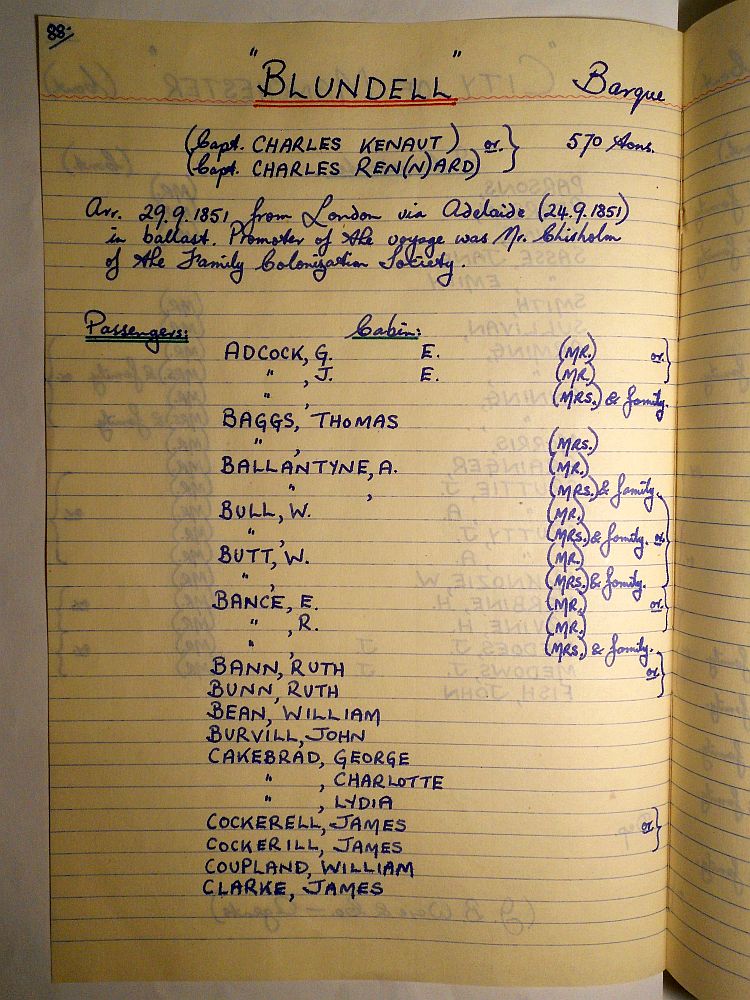 88.
"BLUNDELL" Barque
(Capt. CHARLES KENAUT) or } 570 tons.
(Capt. CHARLES REN(N)ARD)
Arr. 29.9.1851 from London via Adelaide (24.9.1851)
in ballast. Promoter of the voyage was Mr. Chisholm
of the Family Colonization Society.
Passengers: Cabin:
ADCOCK, G. E. (MR.) or }
" , J. E. (MR.)
" , (MRS.) & family.
BAGGS, THOMAS
" , (MRS.)
BALLANTYNE, A. (MR.)
" , (MRS.) & family.
BULL, W. (MR.)
" , (MRS.) & family. or }
BUTT, W. (MR.)
" , (MRS.) & family.
BANCE, E. (MR.) or }
" , R. (MR.)
" , (MRS.) & family.
BANN, RUTH or }
BUNN, RUTH
BEAN, WILLIAM
BURVILL, JOHN
CAKEBRAD, GEORGE
" , CHARLOTTE
" , LYDIA
COCKERELL, JAMES or }
COCKERILL, JAMES
COUPLAND, WILLIAM
CLARKE, JAMES